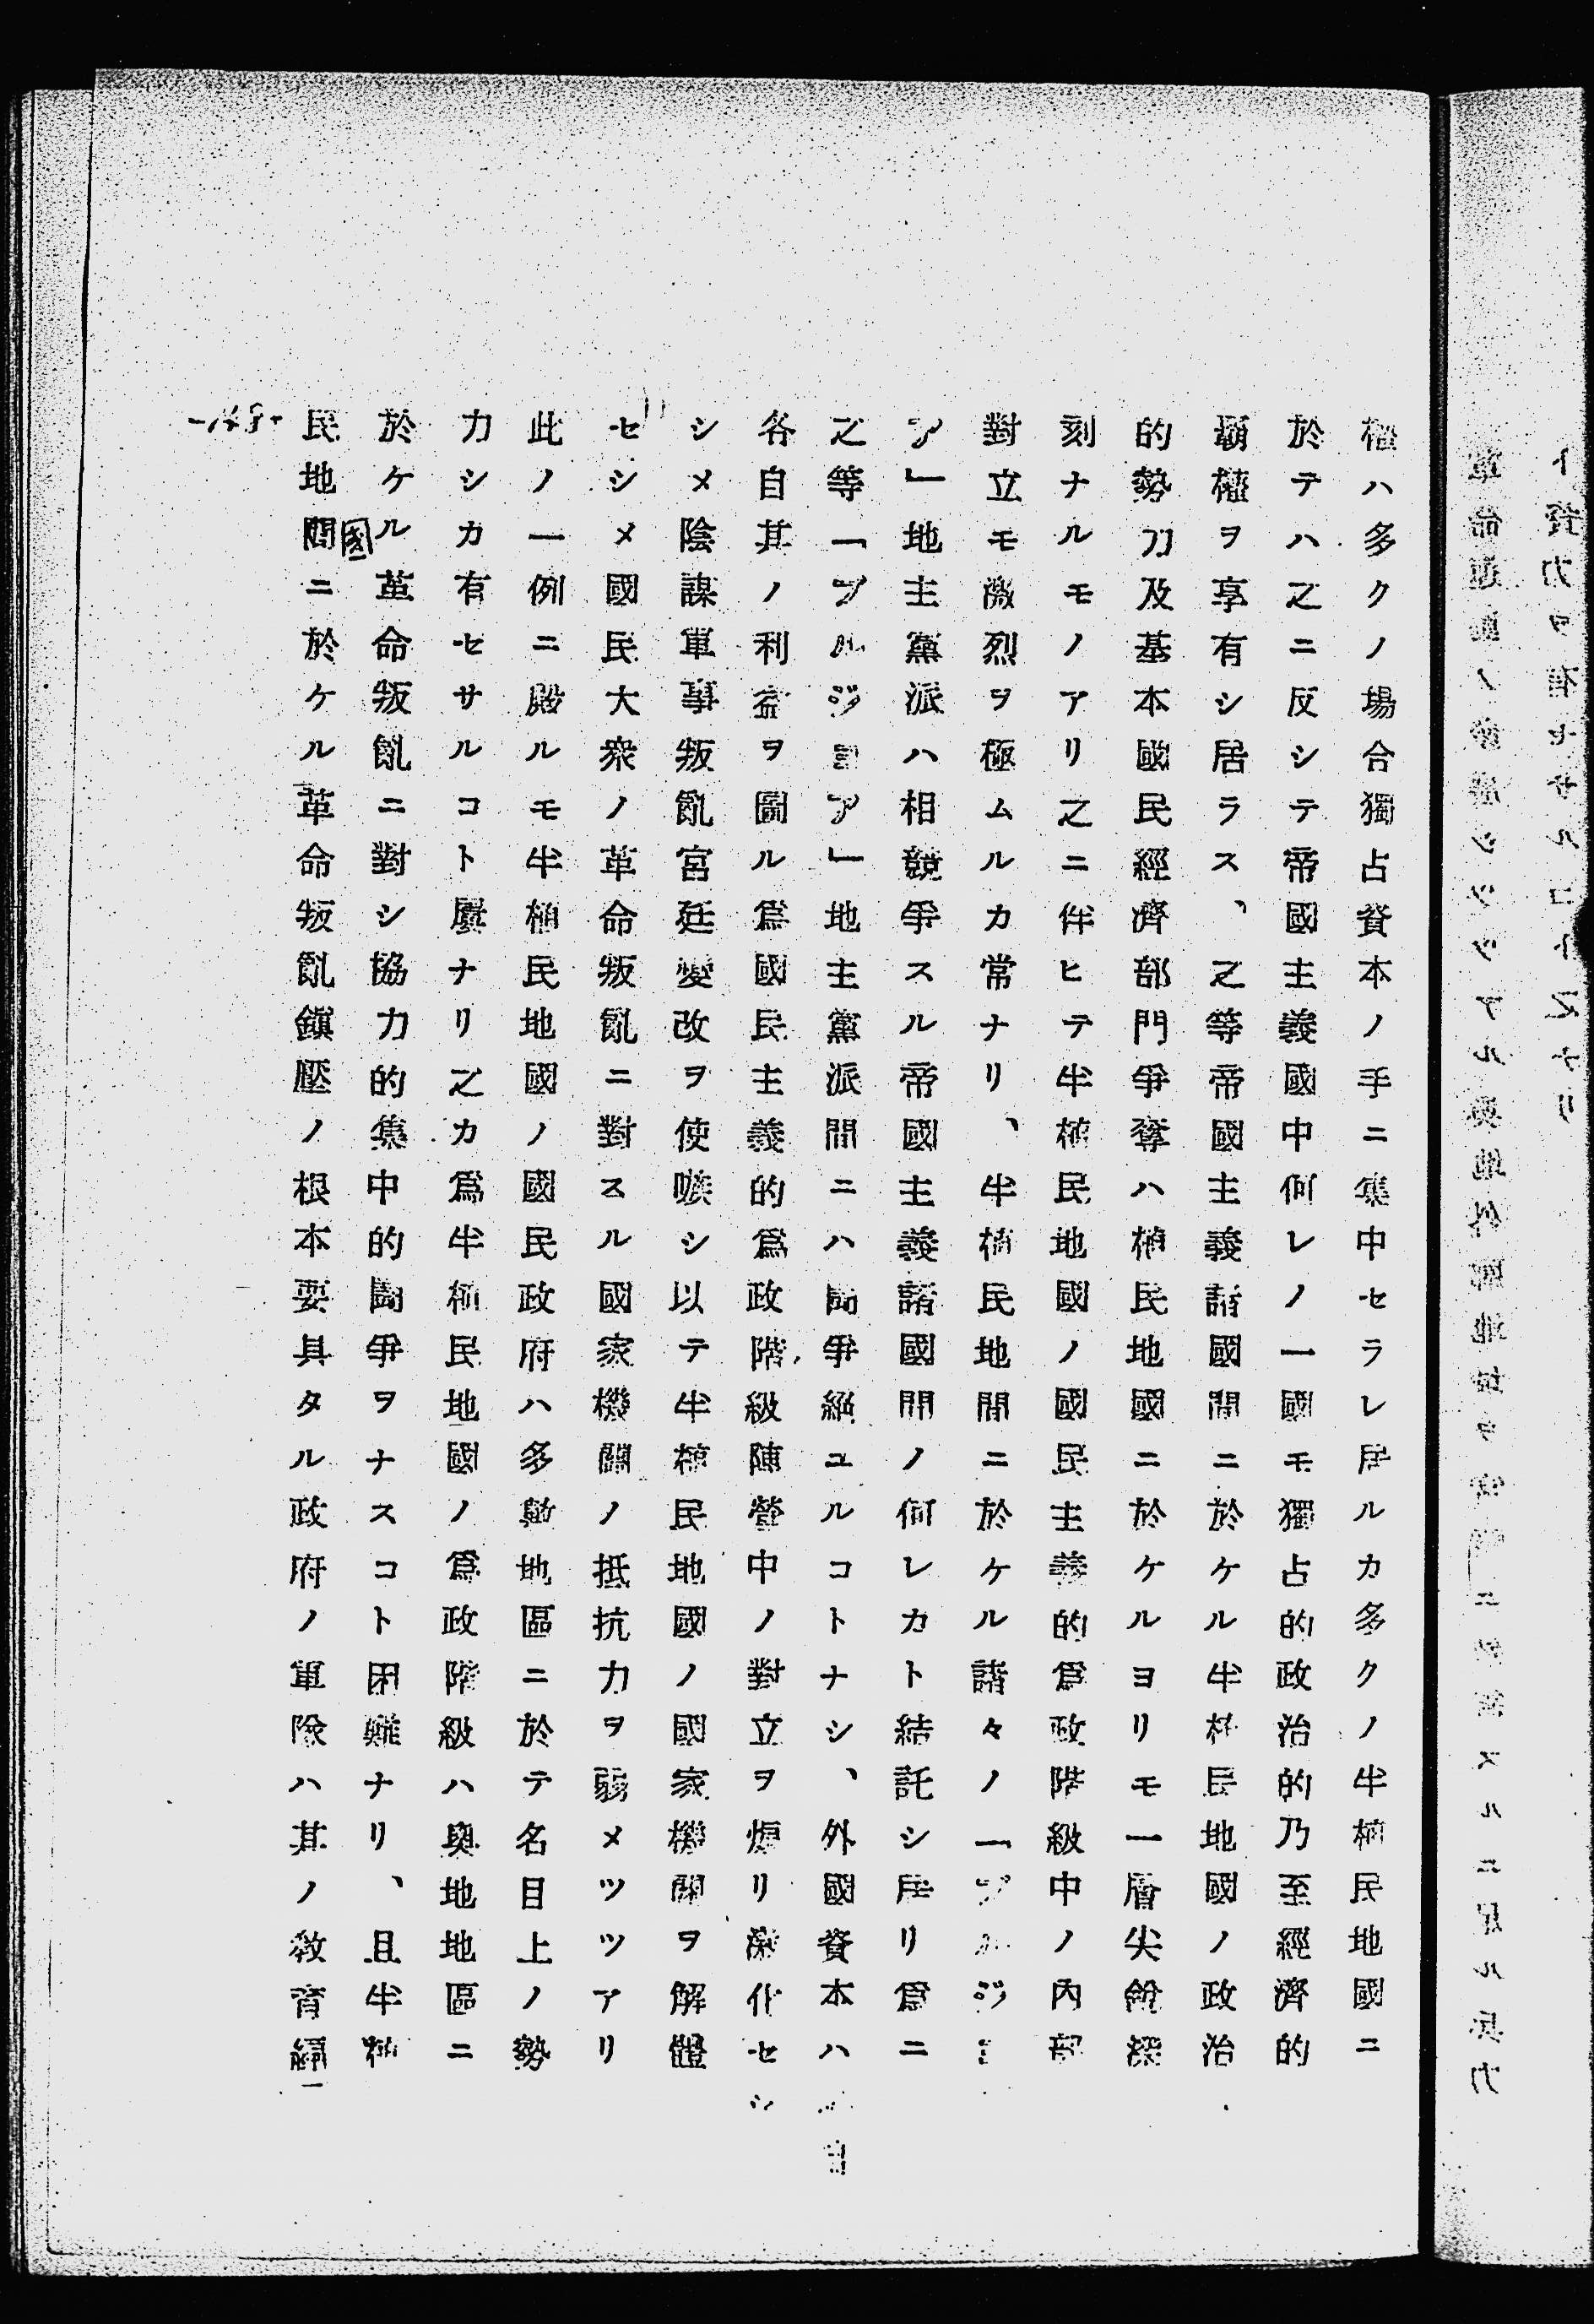 權ハ多クノ場合獨占資本ノ手ニ集中セラレ居ルカ多クノ半植民地國ニ
於テハ之ニ反シテ帝國主義國中何レノ一國モ獨占的政治的乃至經濟的
覇權ヲ享有シ居ラス、之等帝國主義諸國間ニ於ケル半植民地國ノ政治
的勢力及基本國民經濟部門爭奪ハ植民地國ニ於ケルヨリモ一層尖銳深
刻ナルモノアリ之ニ伴ヒテ半植民地國ノ國民主義的爲政階級中ノ內部
對立モ激烈ヲ極ムルカ常ナリ、半植民地間ニ於ケル諸々ノ「ブルジョ
ア」地主黨派ハ相競爭スル帝國主義諸國間ノ何レカト結託シ居リ爲ニ
之等「ブルジョア」地主黨派間ニハ鬪爭絕ユルコトナシ、外國資本ハ
各自其ノ利益ヲ圖ル爲國民主義的爲政階級陣營中ノ對立ヲ煽リ激化セシ
シメ陰謀軍事叛亂宮廷變改ヲ使嗾シ以テ半植民地國ノ國家機關ヲ解體
セシメ國民大衆ノ革命叛亂ニ對スル國家機關ノ抵抗力ヲ弱メツツアリ
此ノ一例ニ殿ルモ半植民地國ノ國民政府ハ多數地區ニ於テ名目上ノ勢
力シカ有セサルコト屢ナリ之カ爲半植民地國ノ爲政階級ハ奧地地區ニ
於ケル革命叛亂ニ對シ協力的集中的鬪爭ヲナスコト困難ナリ、且半植
民地間國ニ於ケル革命叛亂鎭壓ノ根本要具タル政府ノ軍隊ハ其ノ敎育編